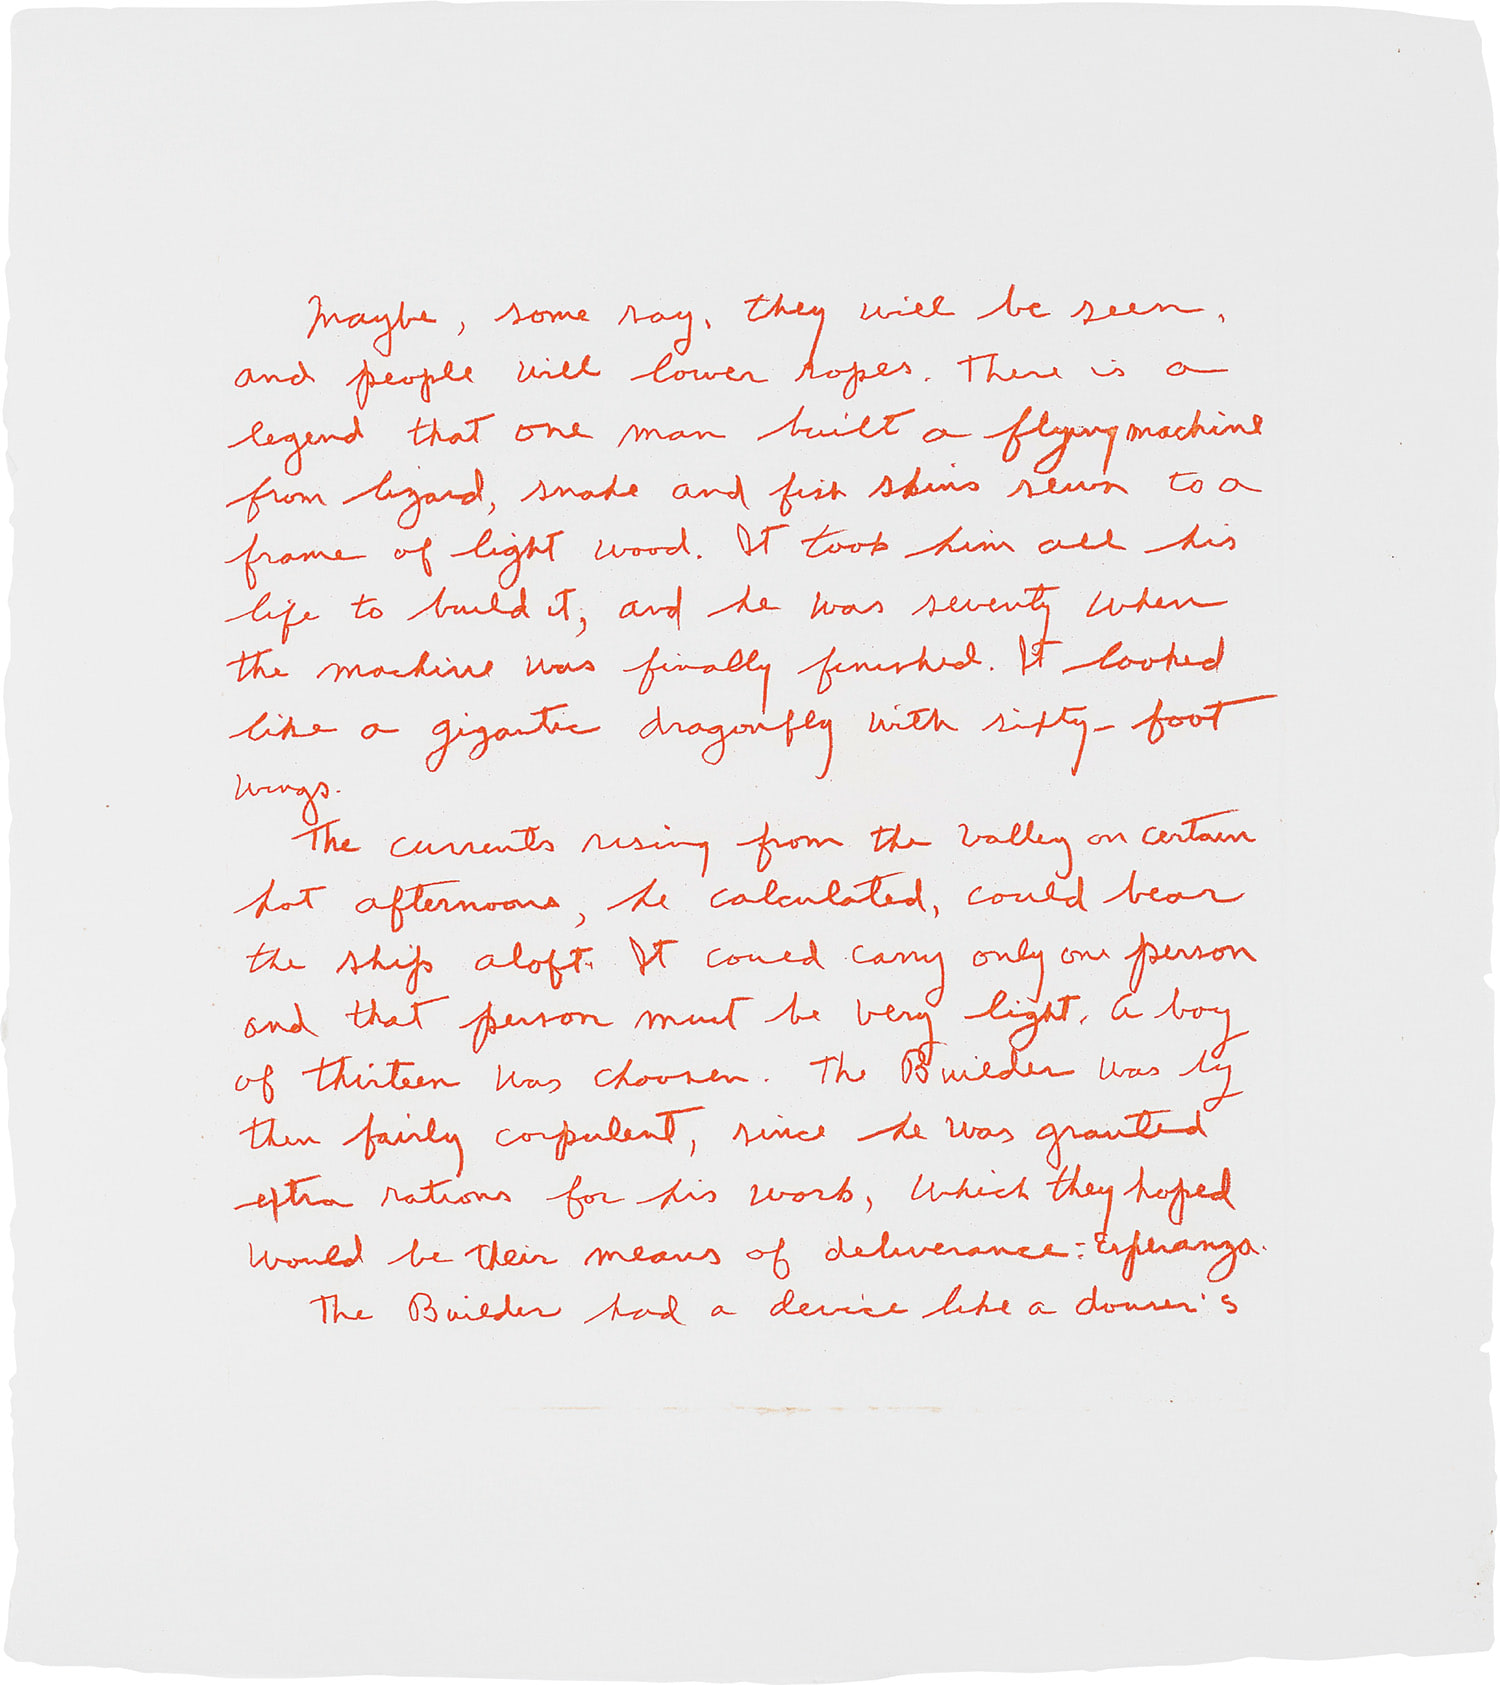 Maybe, some say, they will be seen,
and people will lower ropes. There is a
legend that one man built a flying machine
from lizard, snake and fish skins sewn to a
frame of light wood. It took him all his
life to build it, and he was seventy when
the machine was finally finished. It looked
like a gigantic dragonfly with sixty-foot
wings.
The currents rising from the valley on certain
hot afternoons, he calculated, could bear
the ship aloft. It could carry only one person
and that person must be very light. A boy
of thirteen was choosen. The Builder was by
then fairly corpulent, since he was granted
extra rations for his work, which they hoped
would be their means of deliverance: Esperanza.
The Builder had a device like a douser's